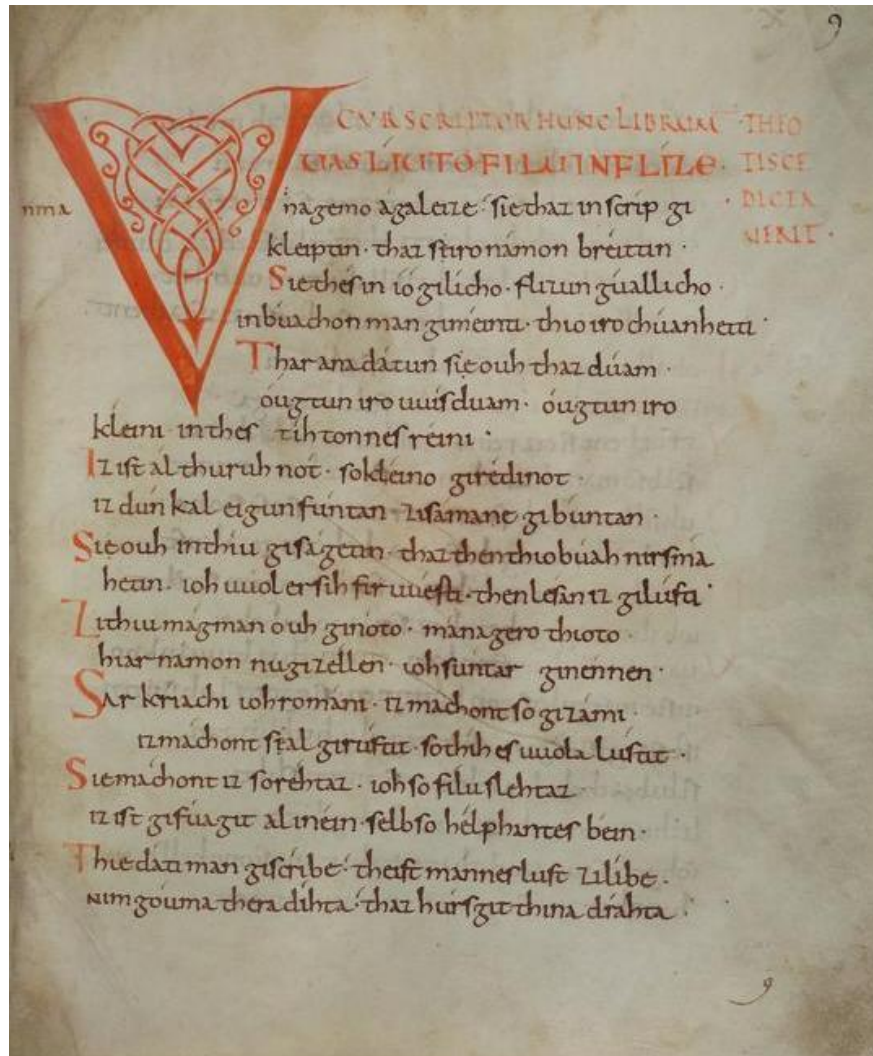 9
CUR SCRIPTOR HUNC LIBRUM THEO
TISCE
DICTA
VERIT ·
VUAS LÍUTO FILU IN FLÍZE ·
nma
in agemo ágaleize · sie thaz in scrip gi
kleiptin · thaz sie iro námon bréittin ·
Sie thés in íó gilícho · flizun gúallicho ·
in búachon man giméinti · thio iro chúanheiti ·
Thar ana dátun sie ouh thaz dúam ·
óugtun iro uuísduam · óugtun iro
kleini · in thes tihtonnes réini ·
Iz ist ál thuruh nót · so kléino girédinot ·
iz dúnkal eigun fúntan · zisámane gibúntan ·
Sie ouh in thiu giságetin · thaz then thio búah nirsmá
hetin · ioh uuol er sih firuuésti · then lésan iz gilústi ·
Zi thiu mág man ouh ginóto · mánagero thíoto ·
hiar námon nu gizéllen · ioh súntar ginénnen ·
Sar kríachi ioh románi · iz máchont so gizámi ·
iz máchont sie ál girústit · so thih es uuola lústit ·
Sie máchont iz so réhtaz · ioh so fílu sléhtaz
iz ist gifúagit al in éin · selb so hélphantes béin ·
Thie dáti man giscríbe · theist mánnes lust zi líbe ·
nim góuma thera díhta · thaz húrsgit thina dráhta ·
9